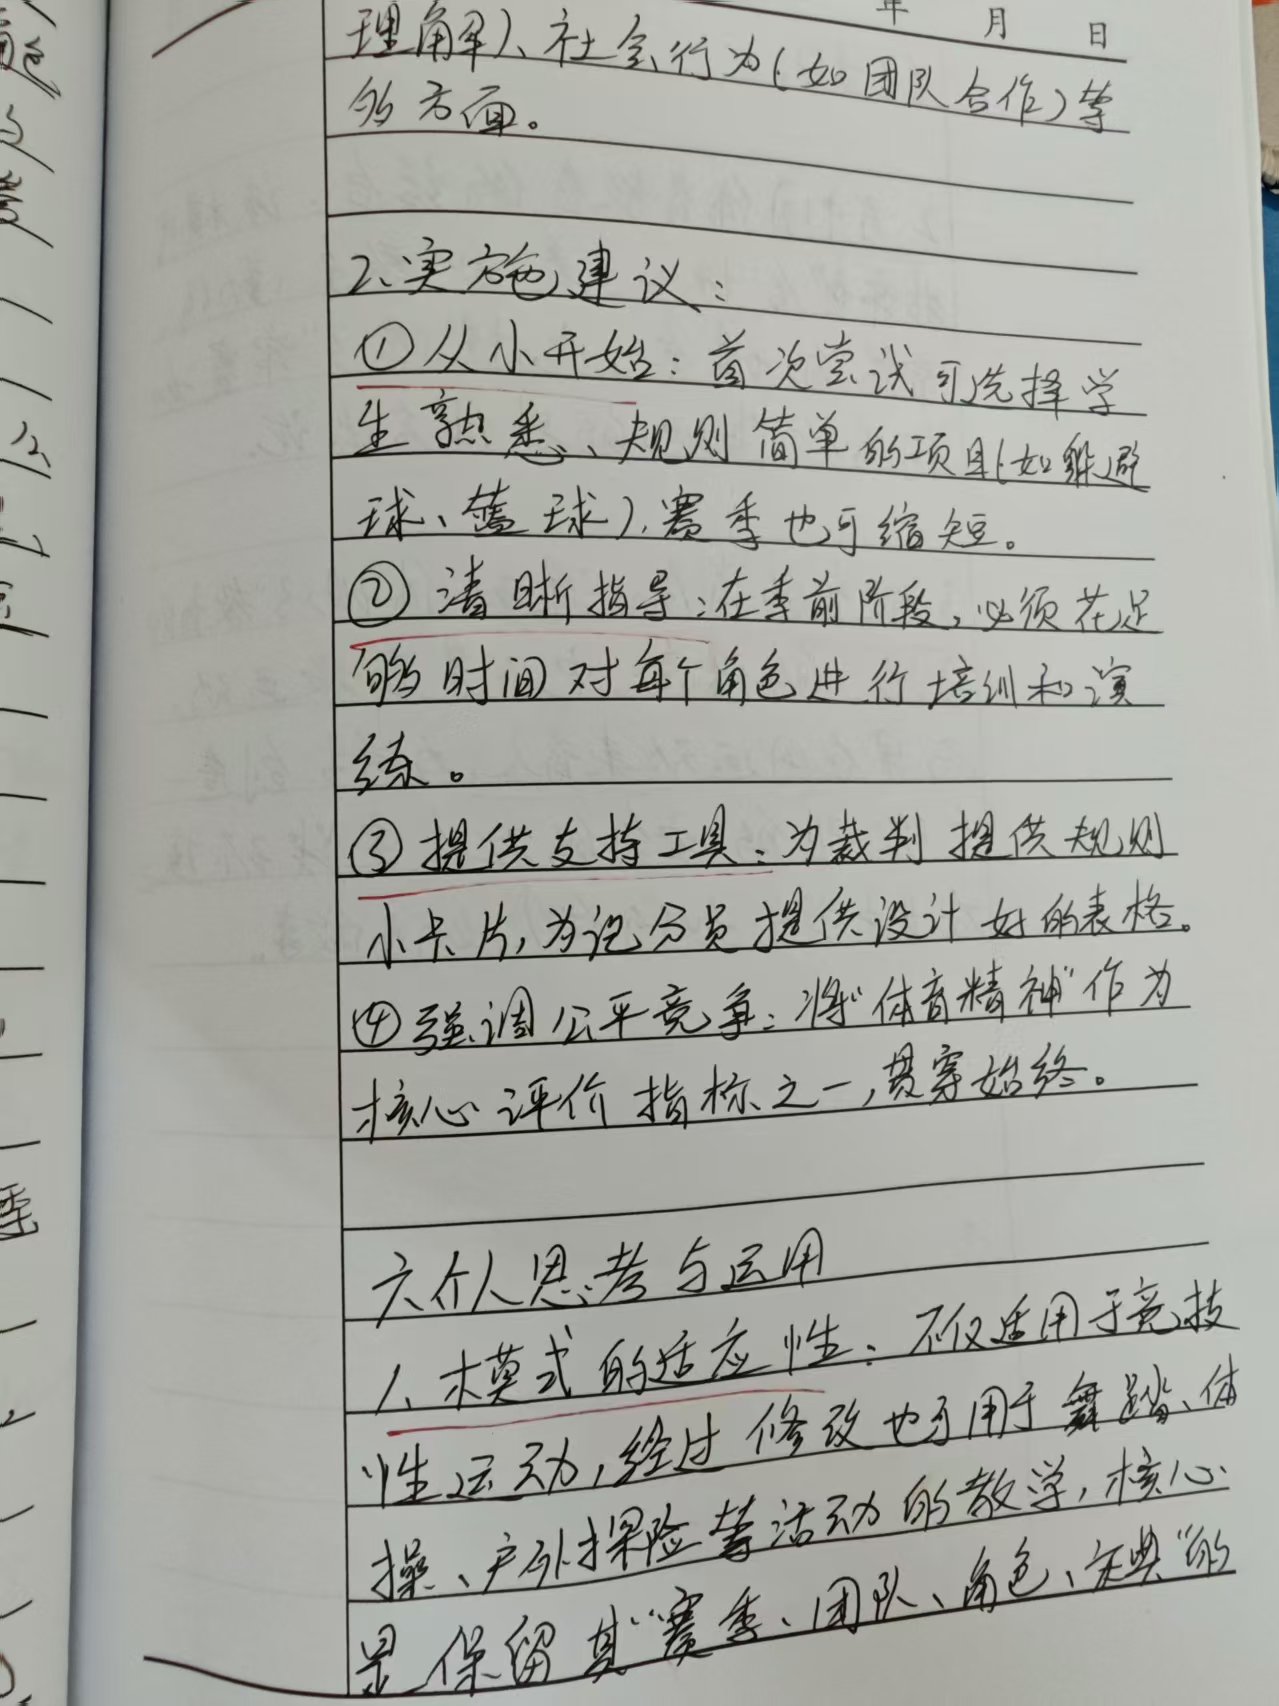 年 月 日
理解)、社会行为(如团队合作)等
的方面。
2、实施建议：
①从小开始：首次尝试可选择学
生熟悉、规则简单的项目(如躲避
球、篮球)，赛季也可缩短。
②清晰指导：在季前阶段，必须花足
够时间对每个角色进行培训和演
练。
③提供支持工具：为裁判提供规则
小卡片，为记分员提供设计好的表格。
④强调公平竞争：将“体育精神”作为
核心评价指标之一，贯穿始终。
六个人思考与运用
1、模式的适应性：不仅适用于竞技
性运动，经过修改也可用于舞蹈、体
操、户外探险等活动的教学，核心
是保留其“赛季、团队、角色、庆典”的
季